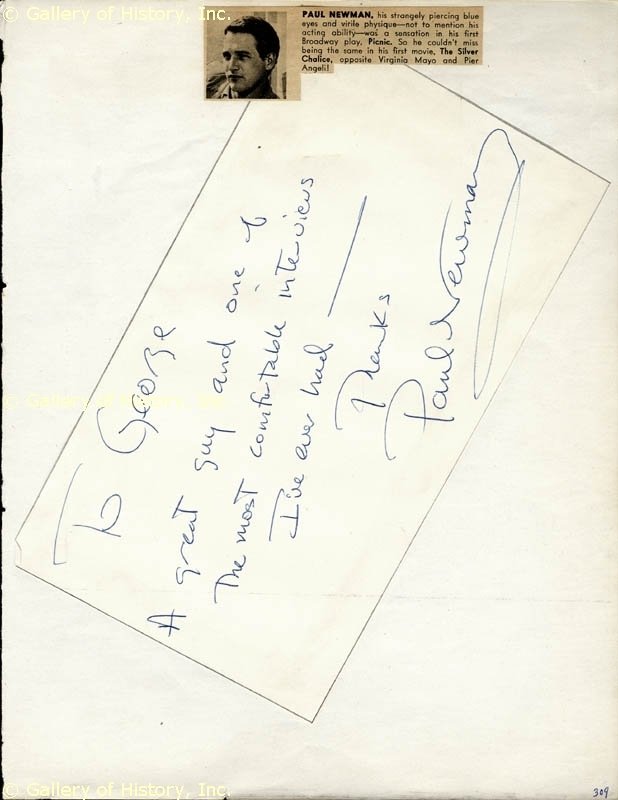 © Gallery of History, Inc.
PAUL NEWMAN, his strangely piercing blue
eyes and virile physique—not to mention his
acting ability—was a sensation in his first
Broadway play, Picnic. So he couldn't miss
being the same in his first movie, The Silver
Chalice, opposite Virginia Mayo and Pier
Angeli!
To George
A great guy and one of
The most comfortable interviews
I've ever had —
Thanks
Paul Newman
© Gallery of History, Inc.
© Gallery of History, Inc.
309